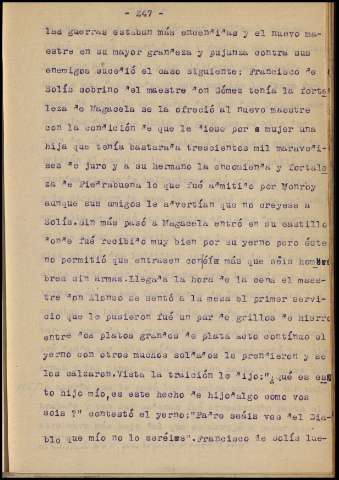 - 247 -
las guerras estaban más encendidas y el nuevo ma-
estre en su mayor grandeza y pujanza contra sus
enemigos sucedió el caso siguiente: Francisco de
Solís sobrino del maestre don Gómez tenía la forta-
leza de Magacela se la ofreció al nuevo maestre
con la condición de que le diese por mujer una
hija que tenía bastarda trescientos mil maravedi-
ses de juro y a su hermano la encomienda y fortale
za de Piedrabuena lo que fué admitido por Monroy
aunque sus amigos le advertían que no creyese a
Solís. Sin más pasó a Magacela entró en su castillo
donde fué recibido muy bien por su yerno pero éste
no permitió que entrasen con él más que séis hom
bres sin armas. Llegada la hora de la cena el maes-
tre don Alonso se sentó a la mesa el primer servi-
cio que le pusieron fué un par de grillos de hierro
entre dos platos grandes de plata acto contínuo el
yerno con otros muchos soldados le prendieron y se
los calzaron. Vista la traición le dijo: "¿qué es es
to hijo mío, es este hecho de hijodalgo como vos
sois ?" contestó el yerno: "Padre seáis vos del Dia-
blo que mío no lo seréis". Francisco de Solís lue-